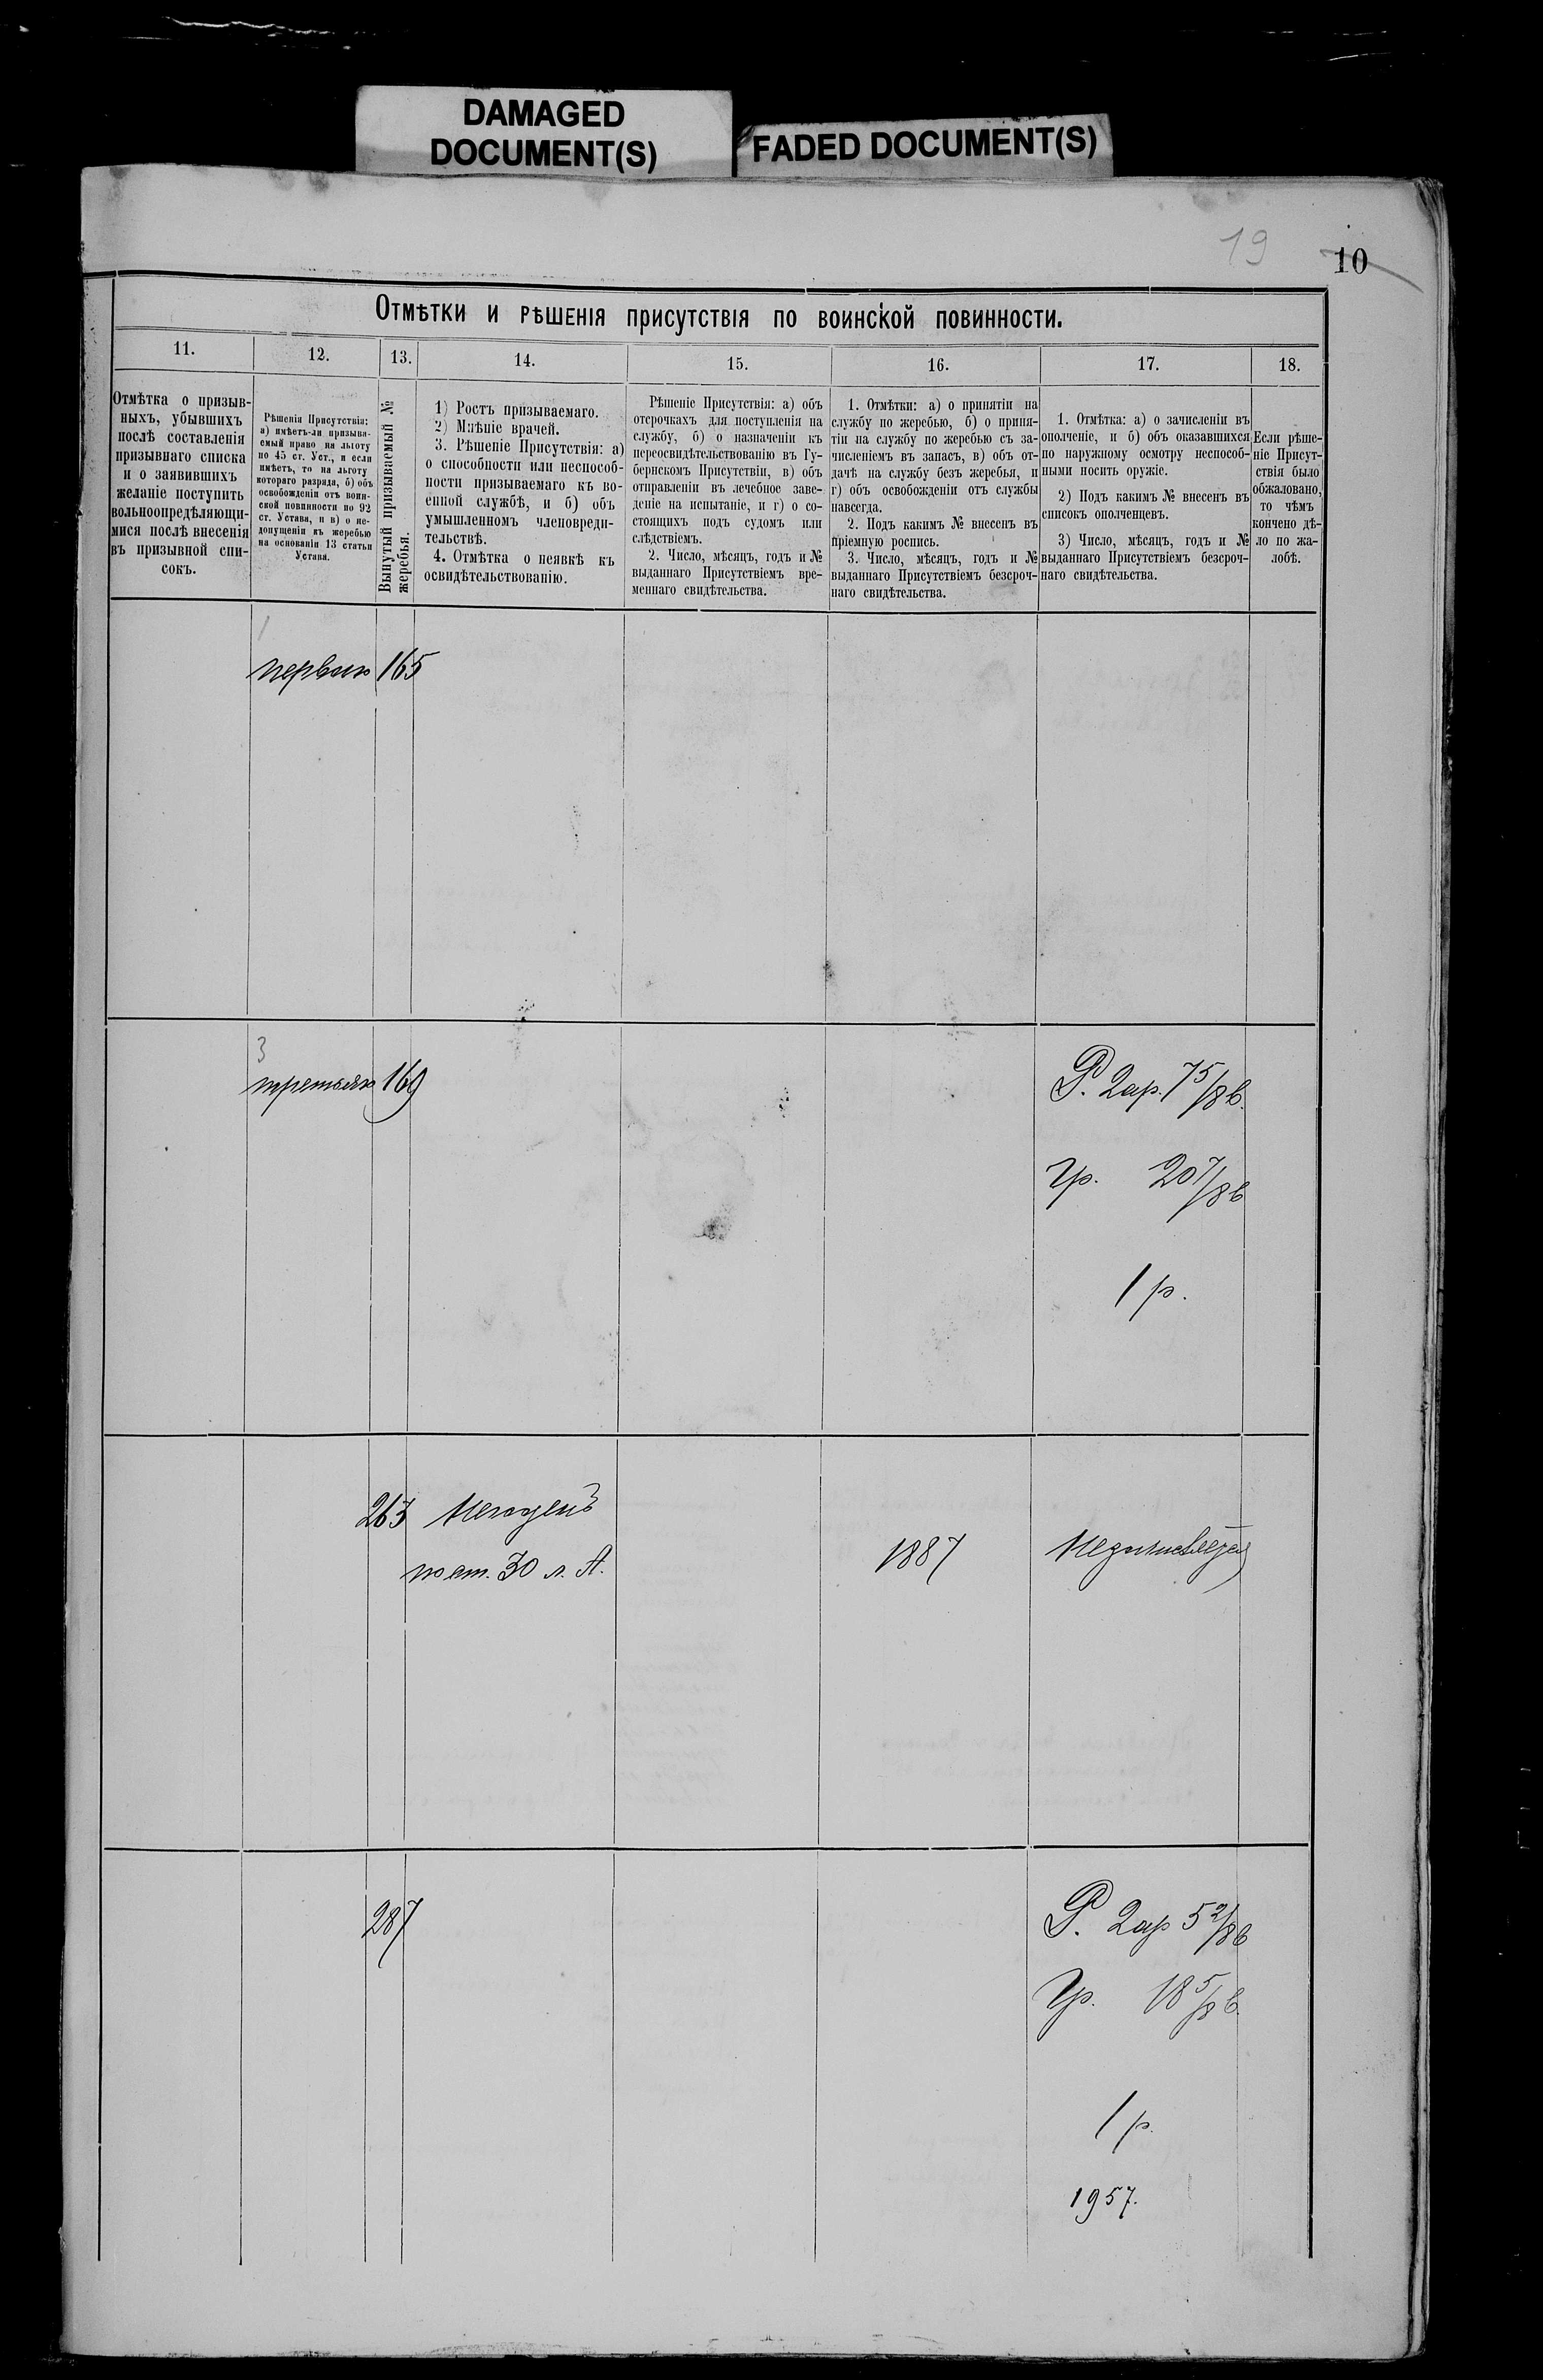 DAMAGED
DOCUMENT(S)
FADED DOCUMENT(S)
19
10
Отмѣтки и рѣшенія присутствія по воинской повинности.
11.
12.
13.
14.
15.
16.
17.
18.
Отмѣтка о призыв-
ныхъ, убывшихъ
послѣ составленія
призывнаго списка
и о заявившихъ
желаніе поступить
вольноопредѣляющи-
мися послѣ внесенія
въ призывной спи-
сокъ.
Рѣшенія Присутствія:
а) имѣетъ-ли призыва-
емый право на льготу
по 45 ст. Уст., и если
имѣетъ, то на льготу
котораго разряда, б) объ
освобожденіи отъ воин-
ской повинности по 92
ст. Устава, и в) о не-
допущеніи къ жеребью
на основаніи 13 статьи
Устава.
Вынутый призываемый №
жеребья.
1) Ростъ призываемаго.
2) Мнѣніе врачей.
3. Рѣшеніе Присутствія: а)
о способности или неспособ-
ности призываемаго къ во-
енной службѣ, и б) объ
умышленномъ членовреди-
тельствѣ.
4. Отмѣтка о неявкѣ къ
освидѣтельствованію.
Рѣшеніе Присутствія: а) объ
отсрочкахъ для поступленія на
службу, б) о назначеніи къ
переосвидѣтельствованію въ Гу-
бернскомъ Присутствіи, в) объ
отправленіи въ лечебное заве-
деніе на испытаніе, и г) о со-
стоящихъ подъ судомъ или
слѣдствіемъ.
2. Число, мѣсяцъ, годъ и №
выданнаго Присутствіемъ вре-
меннаго свидѣтельства.
1. Отмѣтки: а) о принятіи на
службу по жеребью, б) о приня-
тіи на службу по жеребью съ за-
численіемъ въ запасъ, в) объ от-
дачѣ на службу безъ жеребья, и
г) объ освобожденіи отъ службы
навсегда.
2. Подъ какимъ № внесенъ въ
пріемную роспись.
3. Число, мѣсяцъ, годъ и №
выданнаго Присутствіемъ безсроч-
наго свидѣтельства.
1. Отмѣтка: а) о зачисленіи въ
ополченіе, и б) объ оказавшихся
по наружному осмотру неспособ-
ными носить оружіе.
2) Подъ какимъ № внесенъ въ
списокъ ополченцевъ.
3) Число, мѣсяцъ, годъ и №
выданнаго Присутствіемъ безсроч-
наго свидѣтельства.
Если рѣше-
ніе Присут-
ствія было
обжаловано,
то чѣмъ
кончено дѣ-
ло по жа-
лобѣ.
1
первою 165
3
третьяго 169
Р. 2ар. 7 5/8 в.
Гр. 20 7/8 в
1 р.
263 Негоденъ
по ст. 30 л. А.
1887
287
Р. 2ар 5 2/8 в
Гр. 18 5/8 в.
1 р.
1957.